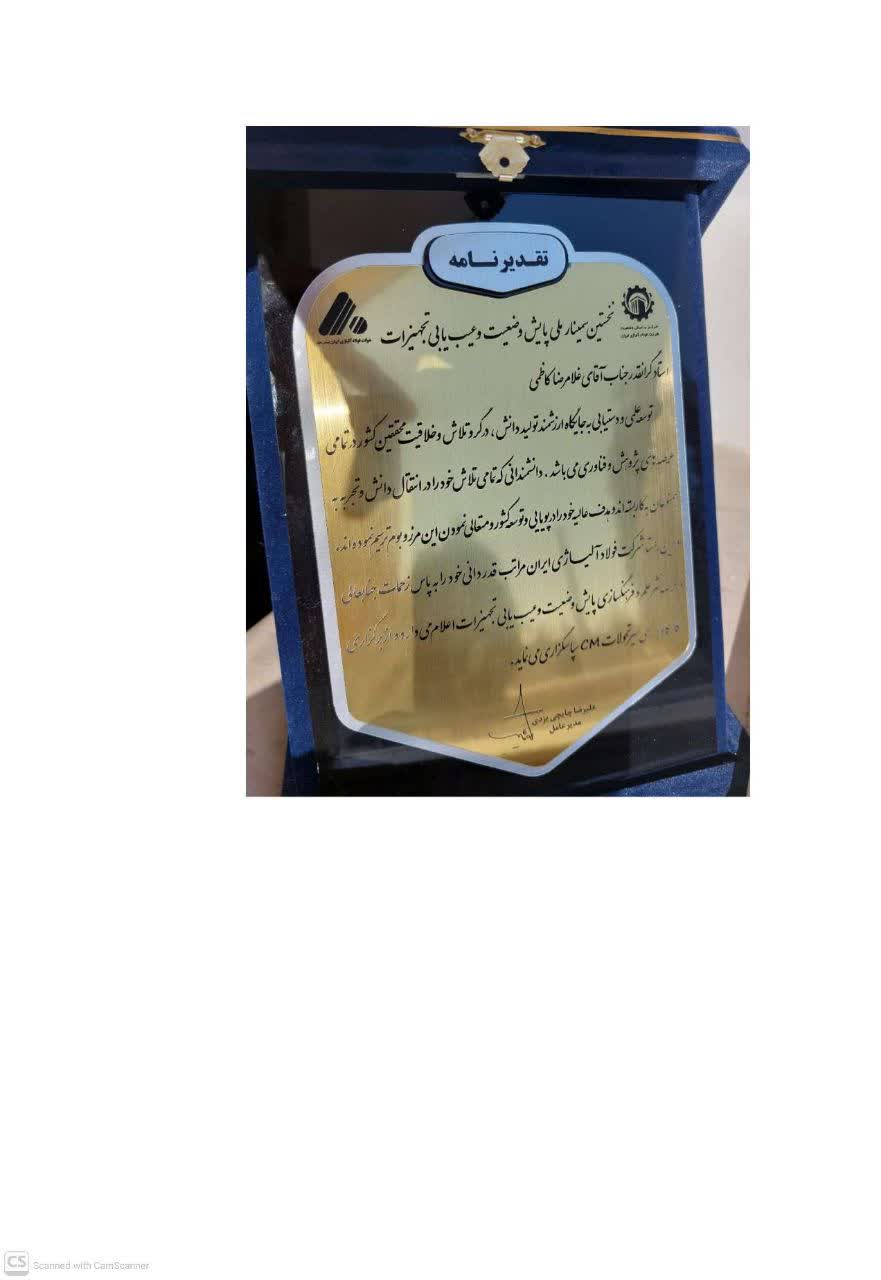 تقدیرنامه
نخستین سمینار ملی پایش وضعیت و عیب یابی تجهیزات
استاد گرانقدر جناب آقای غلامرضا کاظمی
توسعه علمی و دستیابی به جایگاه ارزشمند تولید دانش ، در گرو تلاش و خلاقیت محققین کشور در تمامی
عرصه های پژوهش و فناوری می باشد . دانشمندانی که تمامی تلاش خود را در انتقال دانش و تجربه به
بکار بسته اند و هدف عالیه خود را در پویایی و توسعه کشور و متعالی نمودن این مرز و بوم ترسیم نموده اند .
شرکت فولاد آلیاژی ایران مراتب قدردانی خود را به پاس زحمات جنابعالی
فرهنگسازی پایش وضعیت و عیب یابی تجهیزات اعلام می دارد و از برگزاری
سیر تحولات CM سپاسگزاری می نماید .
علیرضا چایچی یزدی
مدیر عامل
Scanned with CamScanner
CS